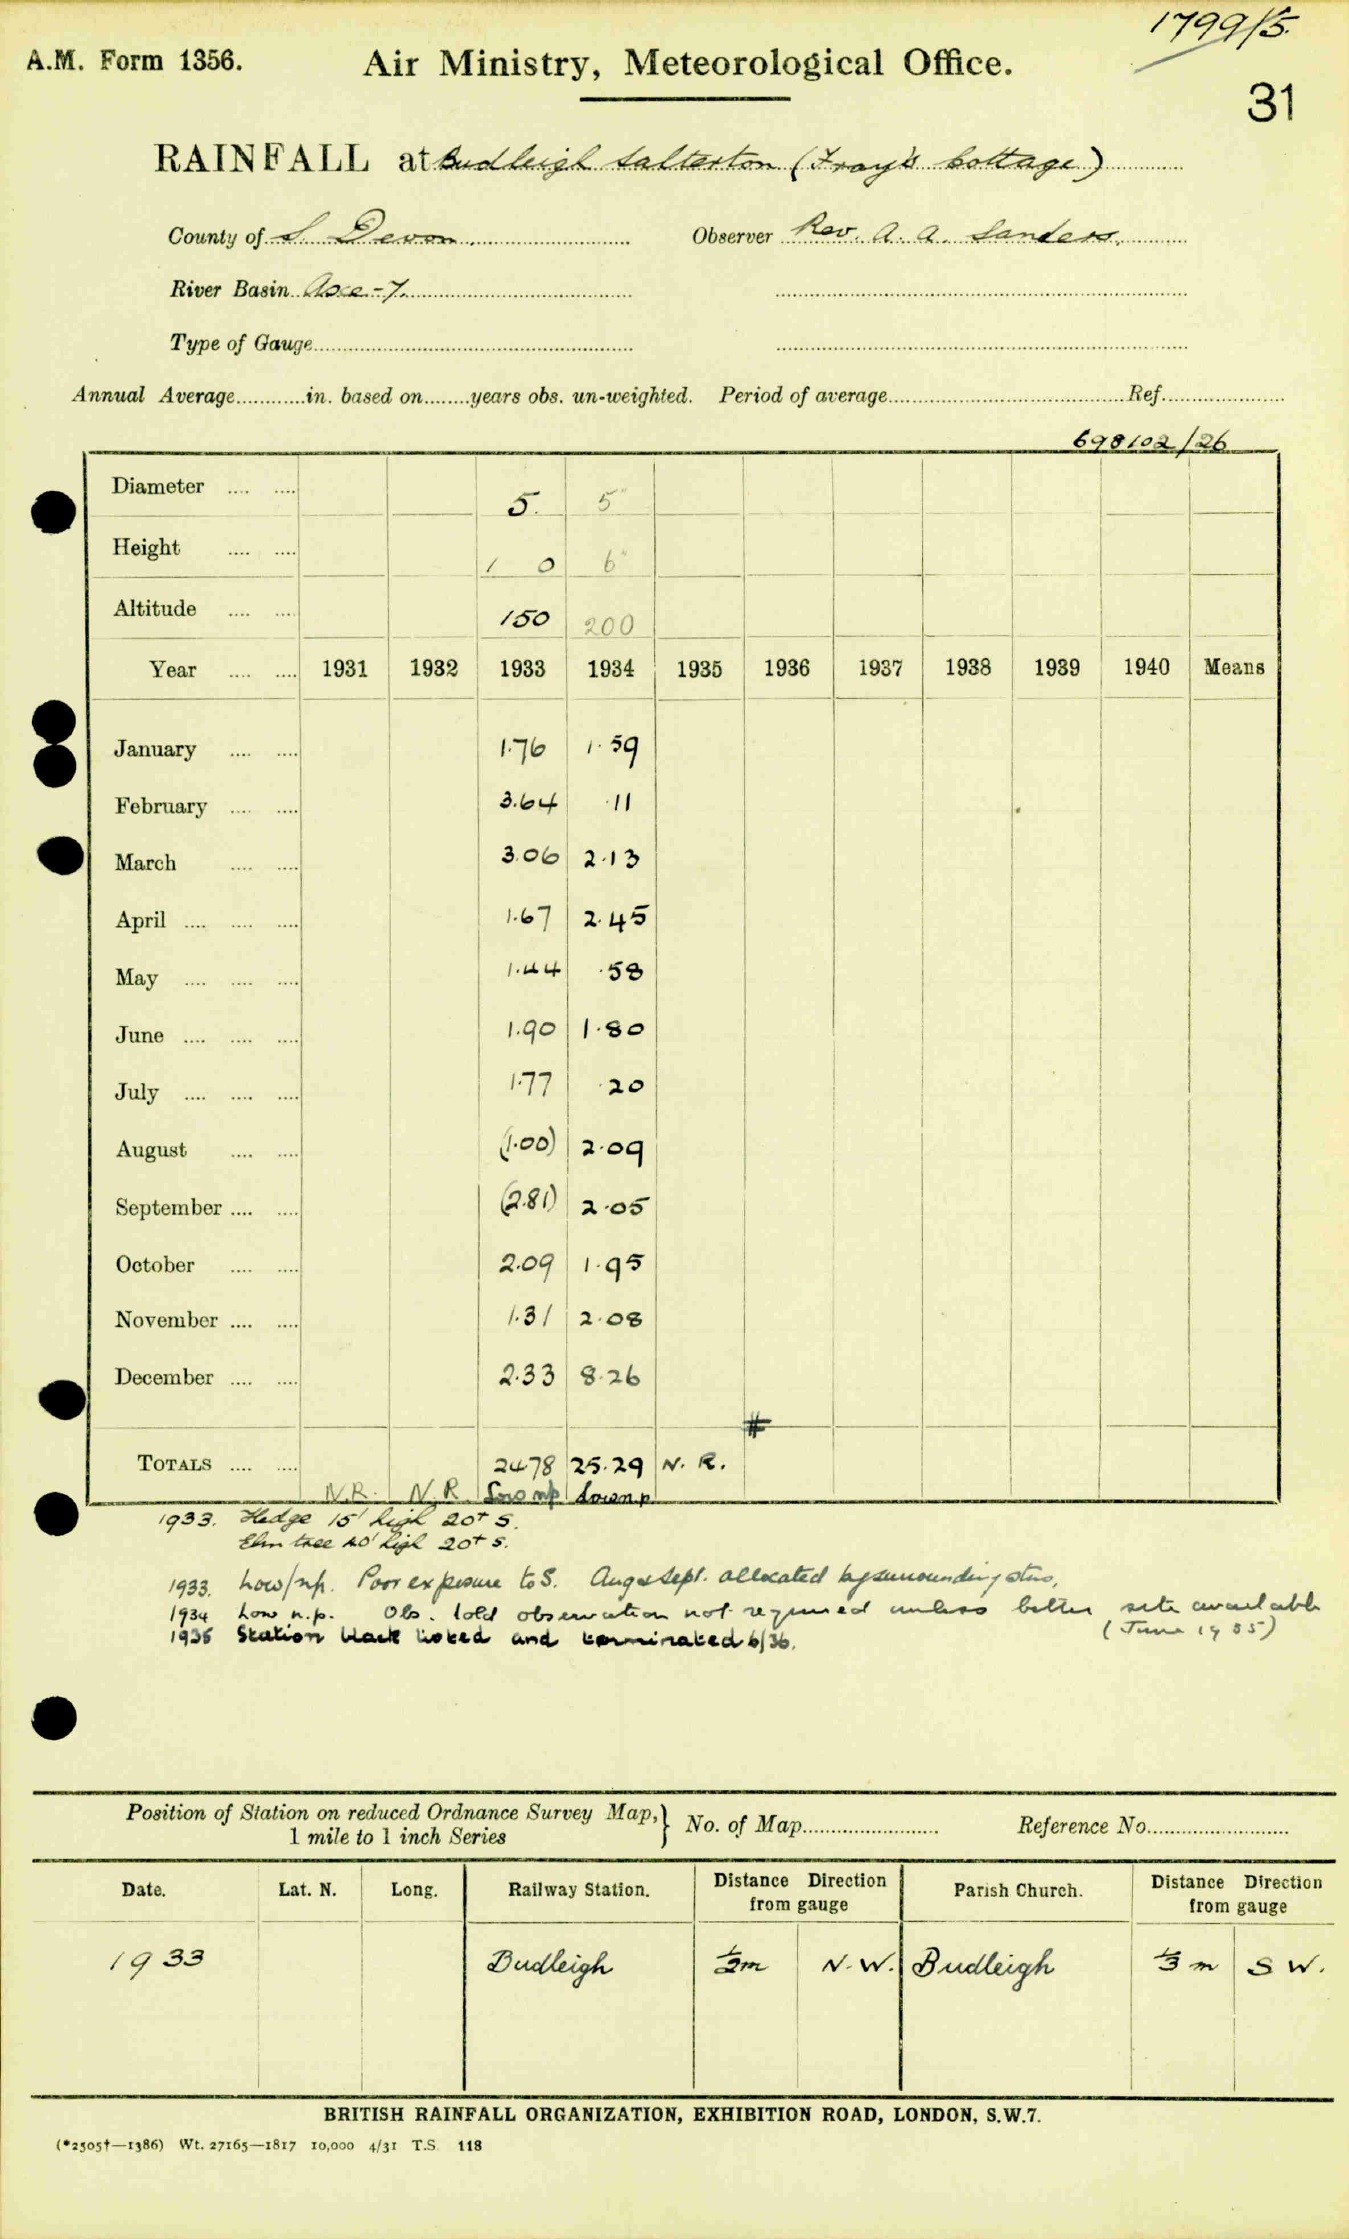 1799/5.
A.M. Form 1356. Air Ministry, Meteorological Office.
31
RAINFALL at Budleigh Salterton (Fray's Cottage)
County of S. Devon. Observer Rev. A. A. Sanders.
River Basin Axe-7.
Type of Gauge
Annual Average in. based on years obs. un-weighted. Period of average Ref.
698102/26
Diameter 5. 5"
Height 1 0 6"
Altitude 150 200
Year 1931 1932 1933 1934 1935 1936 1937 1938 1939 1940 Means
January 1.76 1.59
February 3.64 .11
March 3.06 2.13
April 1.67 2.45
May 1.44 .58
June 1.90 1.80
July 1.77 .20
August (1.00) 2.09
September (2.81) 2.05
October 2.09 1.95
November 1.31 2.08
December 2.33 8.26
#
TOTALS 24.78 25.29 N. R.
N.R. N.R. Low np Low n.p
1933. Hedge 15' high 20+ S.
Elm tree 40' high 20+ S.
1933. Low/np. Poor exposure to S. Aug & Sept. allocated by surrounding stns.
1934 Low n.p. Obs. told observation not required unless better site available
(June 1935)
1935 Station black listed and terminated 6/36.
Position of Station on reduced Ordnance Survey Map, } No. of Map Reference No.
1 mile to 1 inch Series
Date. Lat. N. Long. Railway Station. Distance Direction from gauge Parish Church. Distance Direction from gauge
1933 Budleigh ½m N.W. Budleigh ⅓ m S W.
BRITISH RAINFALL ORGANIZATION, EXHIBITION ROAD, LONDON, S.W.7.
(*2505†—1386) Wt. 27165—1817 10,000 4/31 T.S. 118